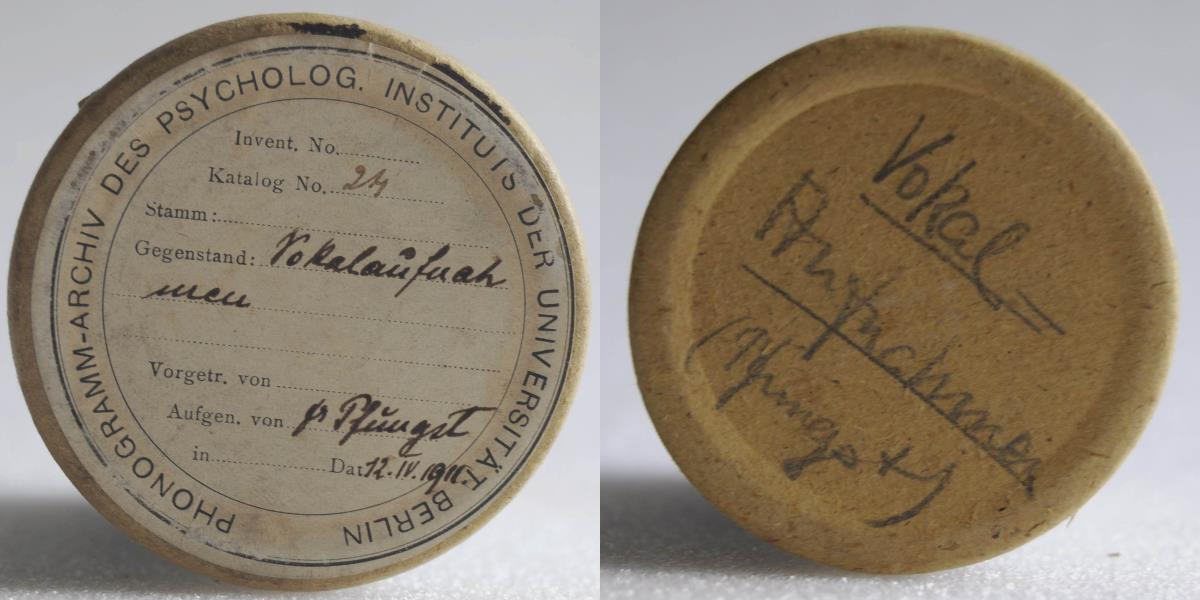 PHONOGRAMM-ARCHIV DES PSYCHOLOG. INSTITUTS DER UNIVERSITÄT BERLIN
Invent. No.
Katalog No. 24
Stamm:
Gegenstand: Vokalaufnah
men
Vorgetr. von
Aufgen. von Pfungst
in Dat. 12.IV.1911.
Vokal
Aufnahmen
(Pfungst)